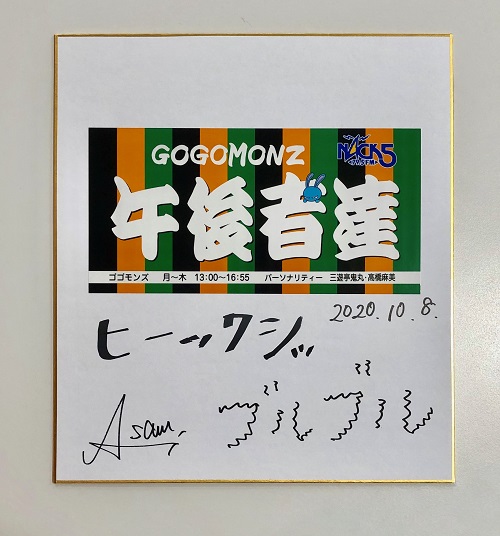 GOGOMONZ NACK5
79.5FM
午後者産
ゴゴモンズ 月～木 13:00～16:55 パーソナリティー 三遊亭鬼丸・高橋麻美
2020.10.8.
ヒーックシッ
Asami
ブルブル